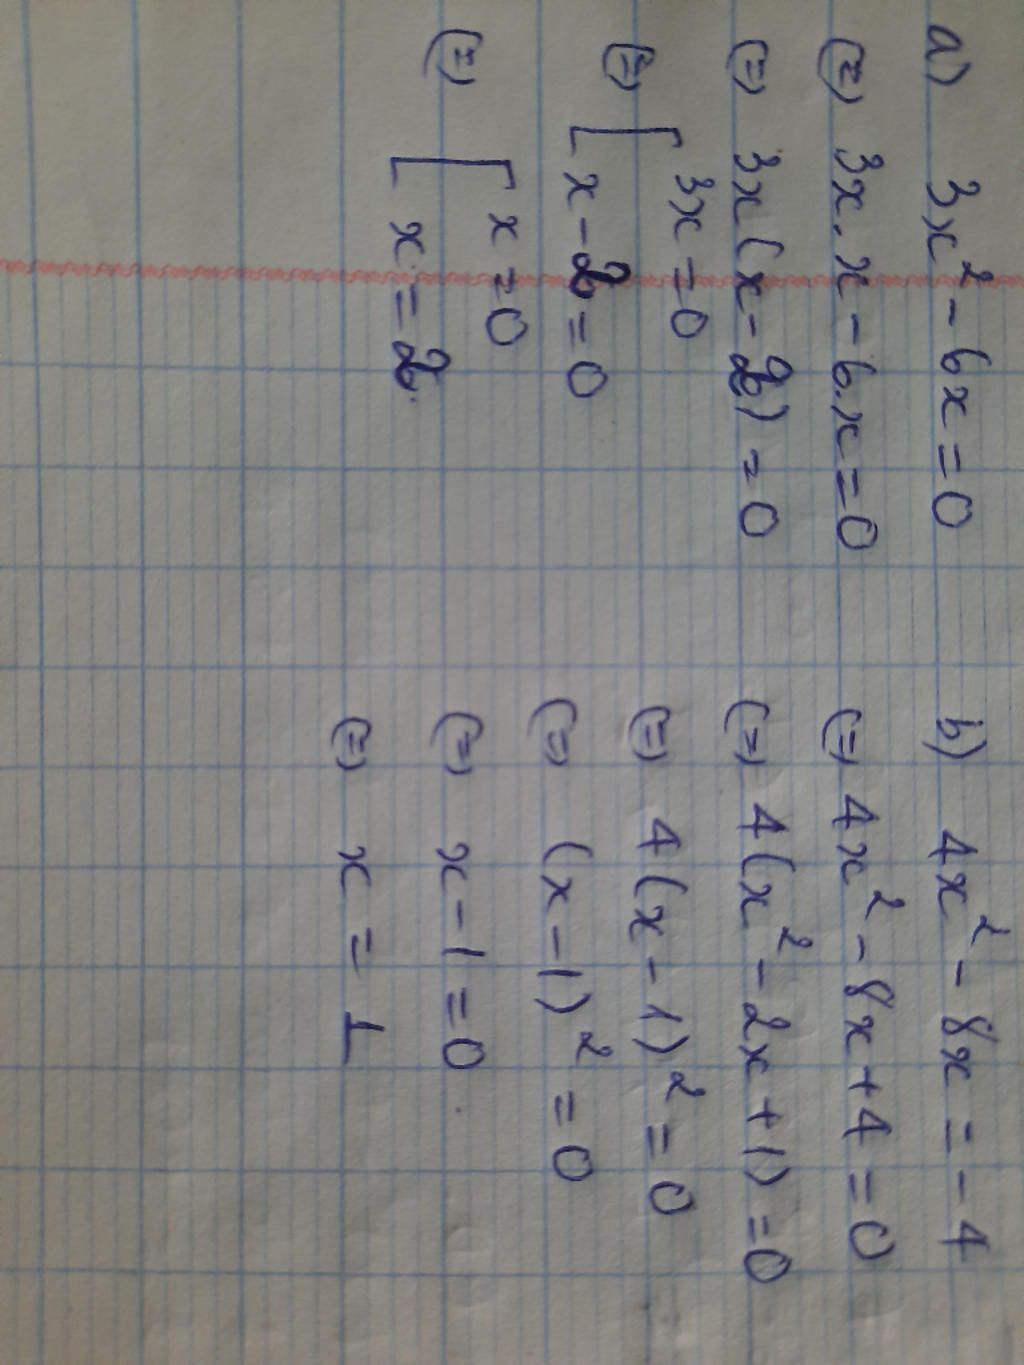 a) 3x² - 6x = 0
(=) 3x.x - 6.x = 0
(=) 3x(x - 2) = 0
(=) [ 3x = 0
x - 2 = 0
(=) [ x = 0
x = 2
b) 4x² - 8x = -4
(=) 4x² - 8x + 4 = 0
(=) 4(x² - 2x + 1) = 0
(=) 4(x - 1)² = 0
(=) (x - 1)² = 0
(=) x - 1 = 0
(=) x = 1